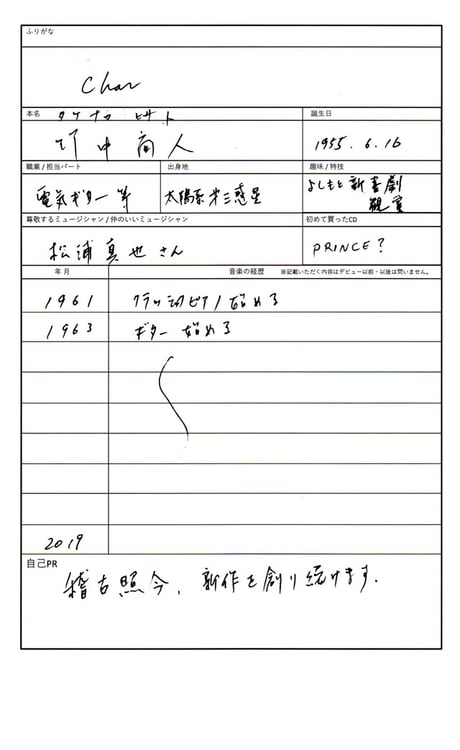 ふりがな
Char
本名
タケナカ ヒサト
竹中尚人
誕生日
1955.6.16
職業 / 担当パート
電気ギター 等
出身地
太陽系第三惑星
趣味 / 特技
よしもと新喜劇
観賞
尊敬するミュージシャン / 仲のいいミュージシャン
松浦真也さん
初めて買ったCD
PRINCE?
年 月
音楽の経歴 ※記載いただく内容はデビュー以前・以後は問いません。
1961 クラッシックピアノ始める
1963 ギター始める
2019
自己PR
稽古照今、新作を創り続けます.